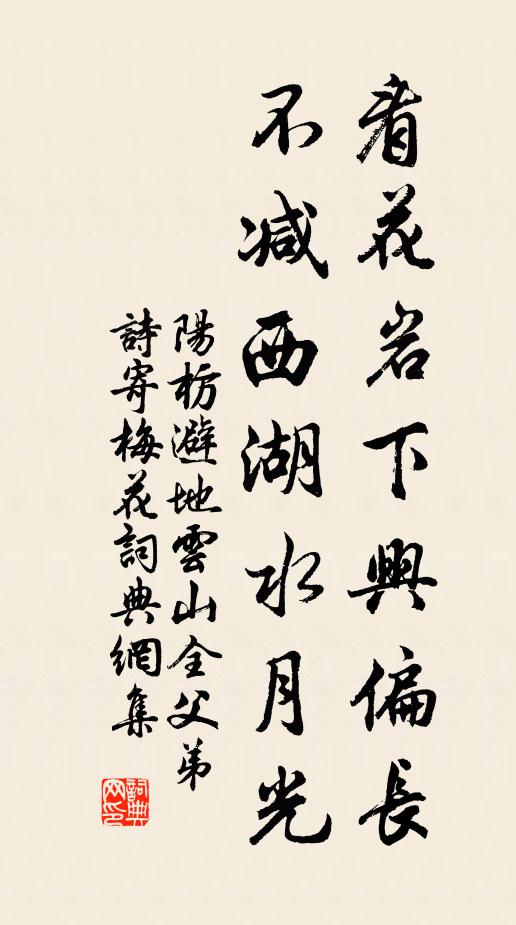 看花岩下興偏長
不减西湖水月光
陽枋避地雲山全父弟
詩寄梅花詞典網集
詞典
网印